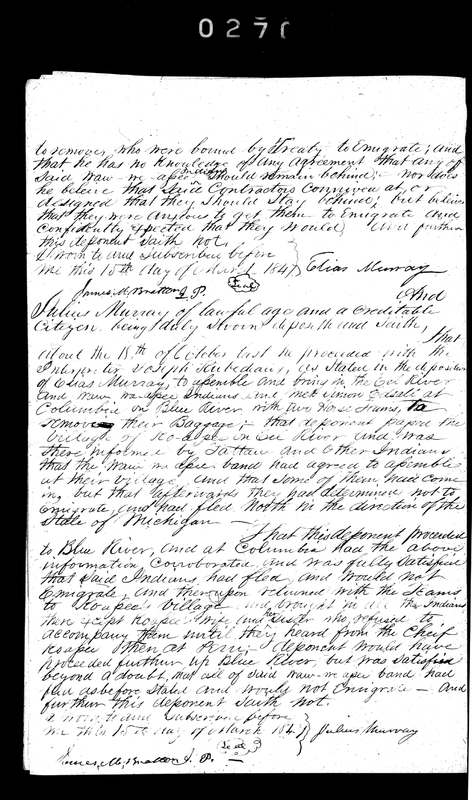 0271
to remove, who were bound by Treaty to Emigrate; and
that he has no knowledge of any agreement that any of
Said Waw-we-apee Indians Should remain behind; nor does
he believe that Said Contractors connived at, or
designed that they Should Stay behind; but believes
that they were anxious to get them to Emigrate and
confidently expected that they would, and further
this deponent Saith not.
Sworn to and Subscribed before
me this 15th day of March 1847 } Elias Murray
James M. Bratton J. P. (Seal)
And
Julius Murray of lawful age and a creditable
Citizen being duly Sworn deposeth and Saith,
That
about the 18th of October last he proceeded with the
Interpreter Joseph, as Stated in the deposition
of Elias Murray, to assemble and bring in the Eel River
and Waw-we-apee Indians and met at
Columbia on Blue River with two Horse Teams, to
remove their Baggage; that deponent passed the
Village of on Eel River and was
there informed by and Other Indians
that the Waw-we-apee band had agreed to assemble
at their Village, and that Some of them had come
in, but that afterwards they had determined not to
Emigrate, and had fled North in the direction of the
State of Michigan —
That this deponent proceeded
to Blue River, and at Columbia had the above
information Corroborated, and was fully Satisfied
that Said Indians had fled, and would not
Emigrate, and thereupon returned with the Teams
to Village and brought in all the Indians
there except wife and her Sister who refused to
accompany them until they heard from the Chief
then at Peru; deponent would have
proceeded further up Blue River, but was Satisfied
beyond a doubt, that all of Said Waw-we-apee band had
fled as before Stated and would not Emigrate — And
further this deponent Saith not.
Sworn to and Subscribed before
me this 15th day of March 1847 } Julius Murray
James M. Bratton J. P. (Seal)